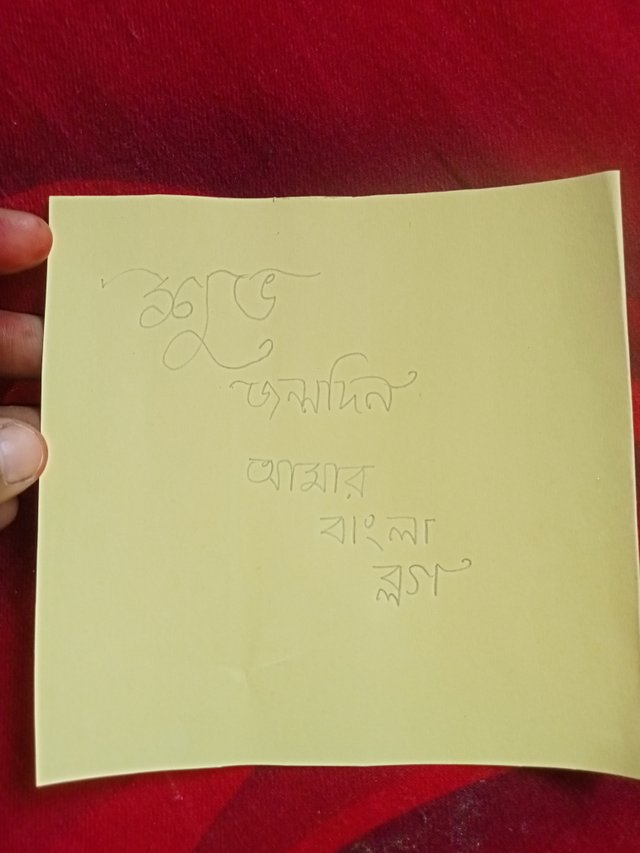 শুভ
জন্মদিন
আমার
বাংলা
ব্লগ